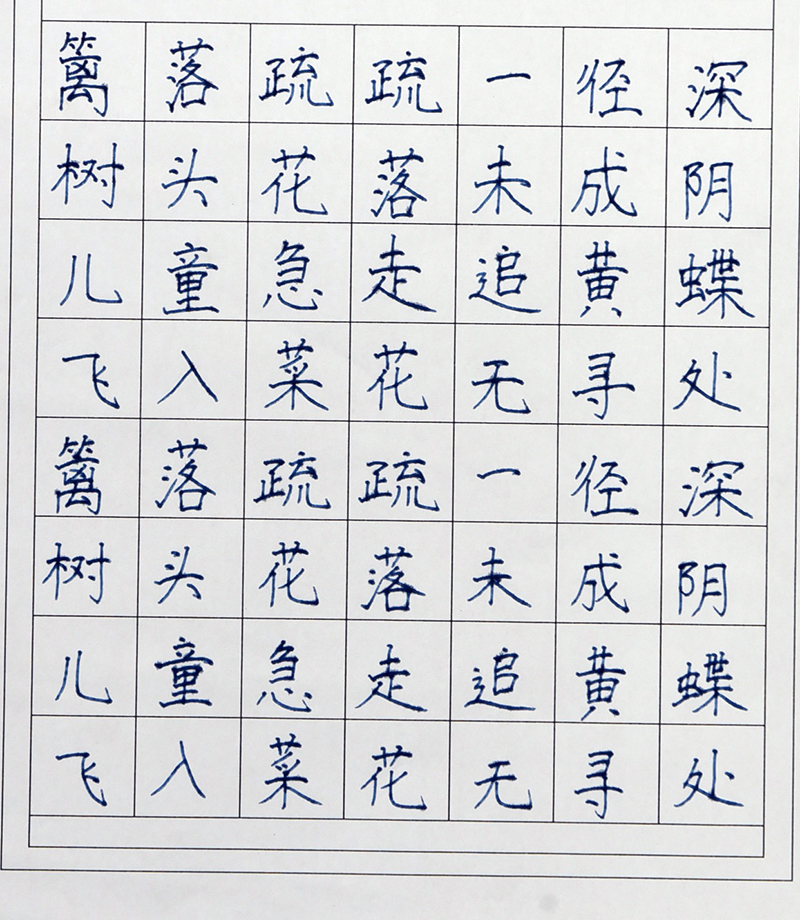 篱落疏疏一径深
树头花落未成阴
儿童急走追黄蝶
飞入菜花无寻处
篱落疏疏一径深
树头花落未成阴
儿童急走追黄蝶
飞入菜花无寻处